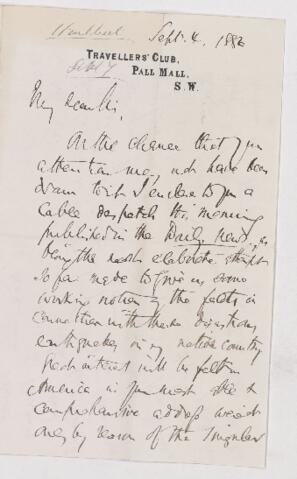 Sept. 4. 1886
TRAVELLERS' CLUB,
PALL MALL,
S.W.
My dear Sir,
On the chance that your
attention may not have been
drawn to it I enclose to you a
Cable despatch this morning
published in the Daily News, as
being the most elaborate attempt
so far made to give us some
working notion of the facts in
connection with these disastrous
earthquakes in my native country
Great interest will be felt in
America in your most able &
comprehensive address
only by reason of the singular